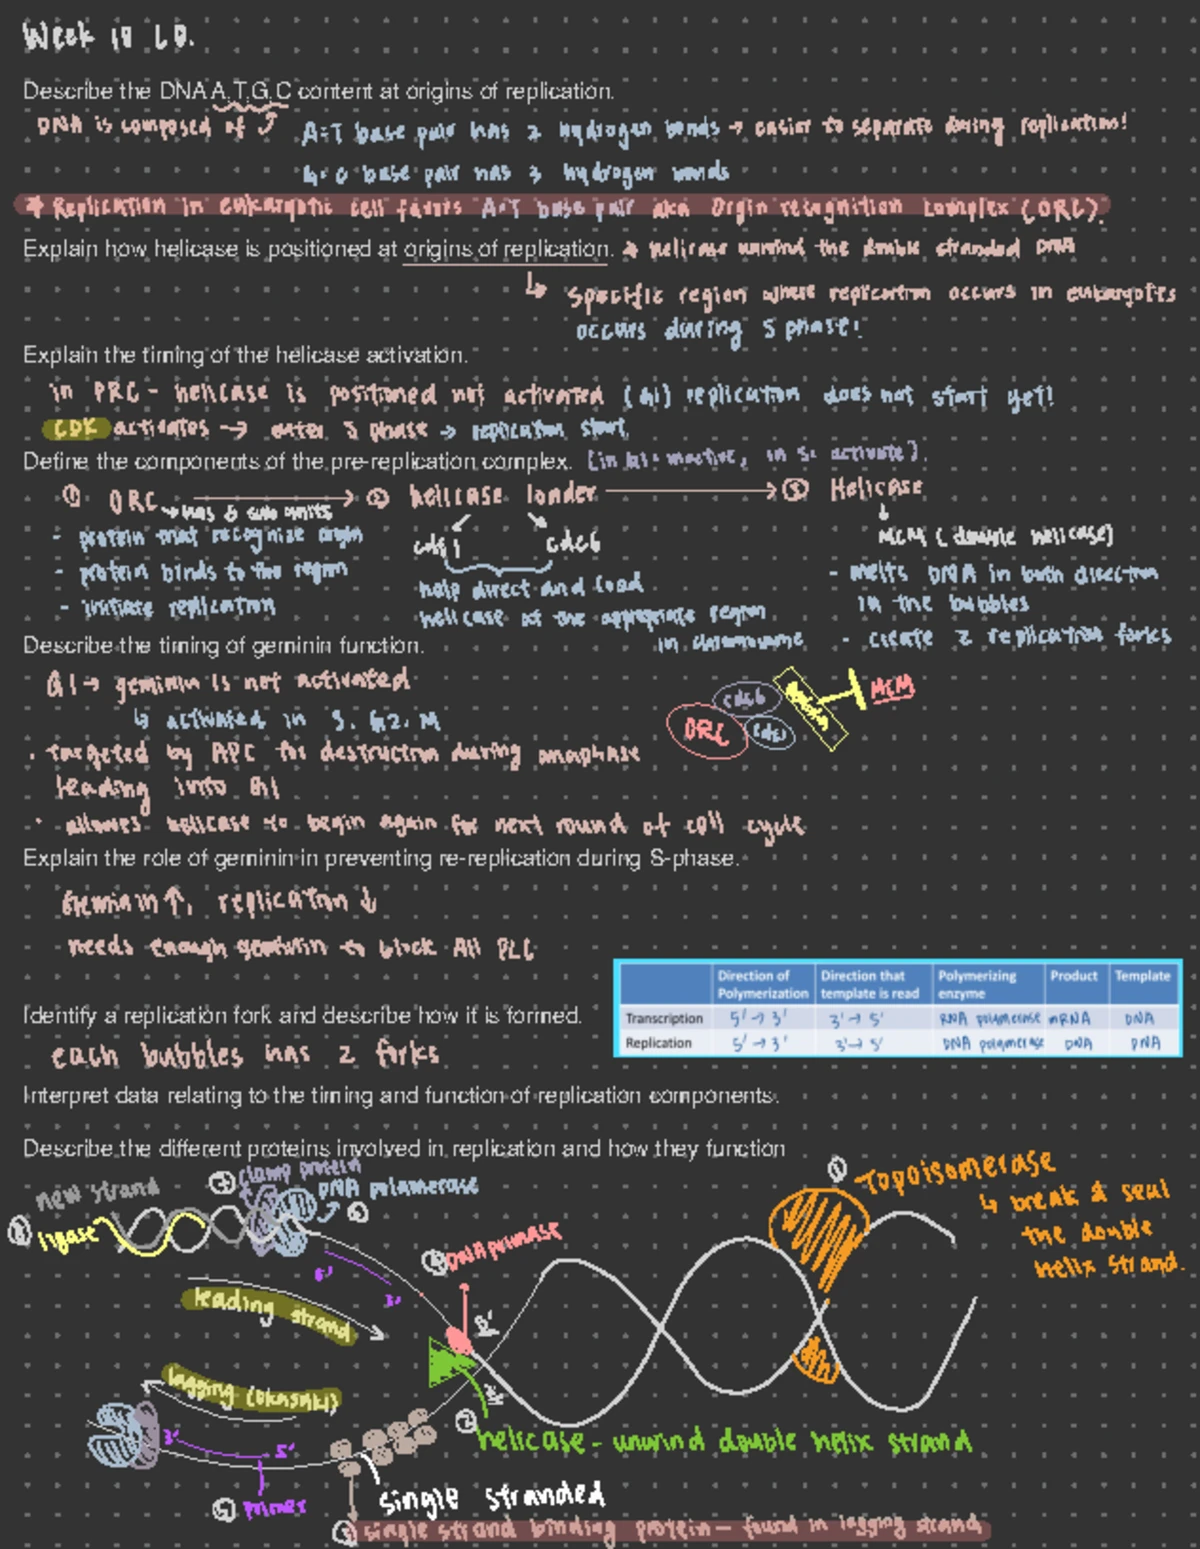 Week 10 LO.
Describe the DNA A,T,G,C content at origins of replication.
DNA is composed of A=T base pair has 2 hydrogen bonds → easier to separate during replication!
G=C base pair has 3 hydrogen bonds
* Replication in eukaryotic cell favors A=T base pair aka Orgin recognition complex (ORC).
Explain how helicase is positioned at origins of replication. → helicase unwind the double stranded DNA
↳ specific region where replication occurs in eukaryotes
occurs during S phase!
Explain the timing of the helicase activation.
in PRC - helicase is positioned not activated (G1) replication does not start yet!
CDK activates → enter S phase → replication start
Define the components of the pre-replication complex. [in G1: inactive, in S: activate].
① ORC → ② helicase loader → ③ Helicase
↳ has 6 sub units
- protein that recognize origin
- protein binds to the region
- initiate replication
cdt1 cdc6
help direct and load
helicase at the appropriate region
in chromosome
MCM (double helicase)
- melts DNA in both direction
in the bubbles
- create 2 replication forks
Describe the timing of geminin function.
G1 → geminin is not activated
↳ activated in S, G2, M
· targeted by APC for destruction during anaphase
leading into G1
· allows helicase to begin again for next round of cell cycle
ORC cdc6 cdt1 MCM
Explain the role of geminin in preventing re-replication during S-phase.
Geminin ↑, replication ↓
needs enough geminin to block All
Identify a replication fork and describe how it is formed.
each bubbles has 2 forks
Direction of Polymerization Direction that template is read Polymerizing enzyme Product Template
Transcription 5' → 3' 3' → 5' RNA polymerase mRNA DNA
Replication 5' → 3' 3' → 5' DNA polymerase DNA DNA
Interpret data relating to the timing and function of replication components.
Describe the different proteins involved in replication and how they function
new strand
⑦ clamp protein
DNA polamerase
⑧ ligase
① Topoisomerase
↳ break & seal
the double
helix strand.
④ DNA primase
5' 3'
leading strand
lagging (okasaki)
3' 5'
⑤ primer
② helicase - unwind double helix strand
single stranded
③ single strand binding protein - found in lagging strand